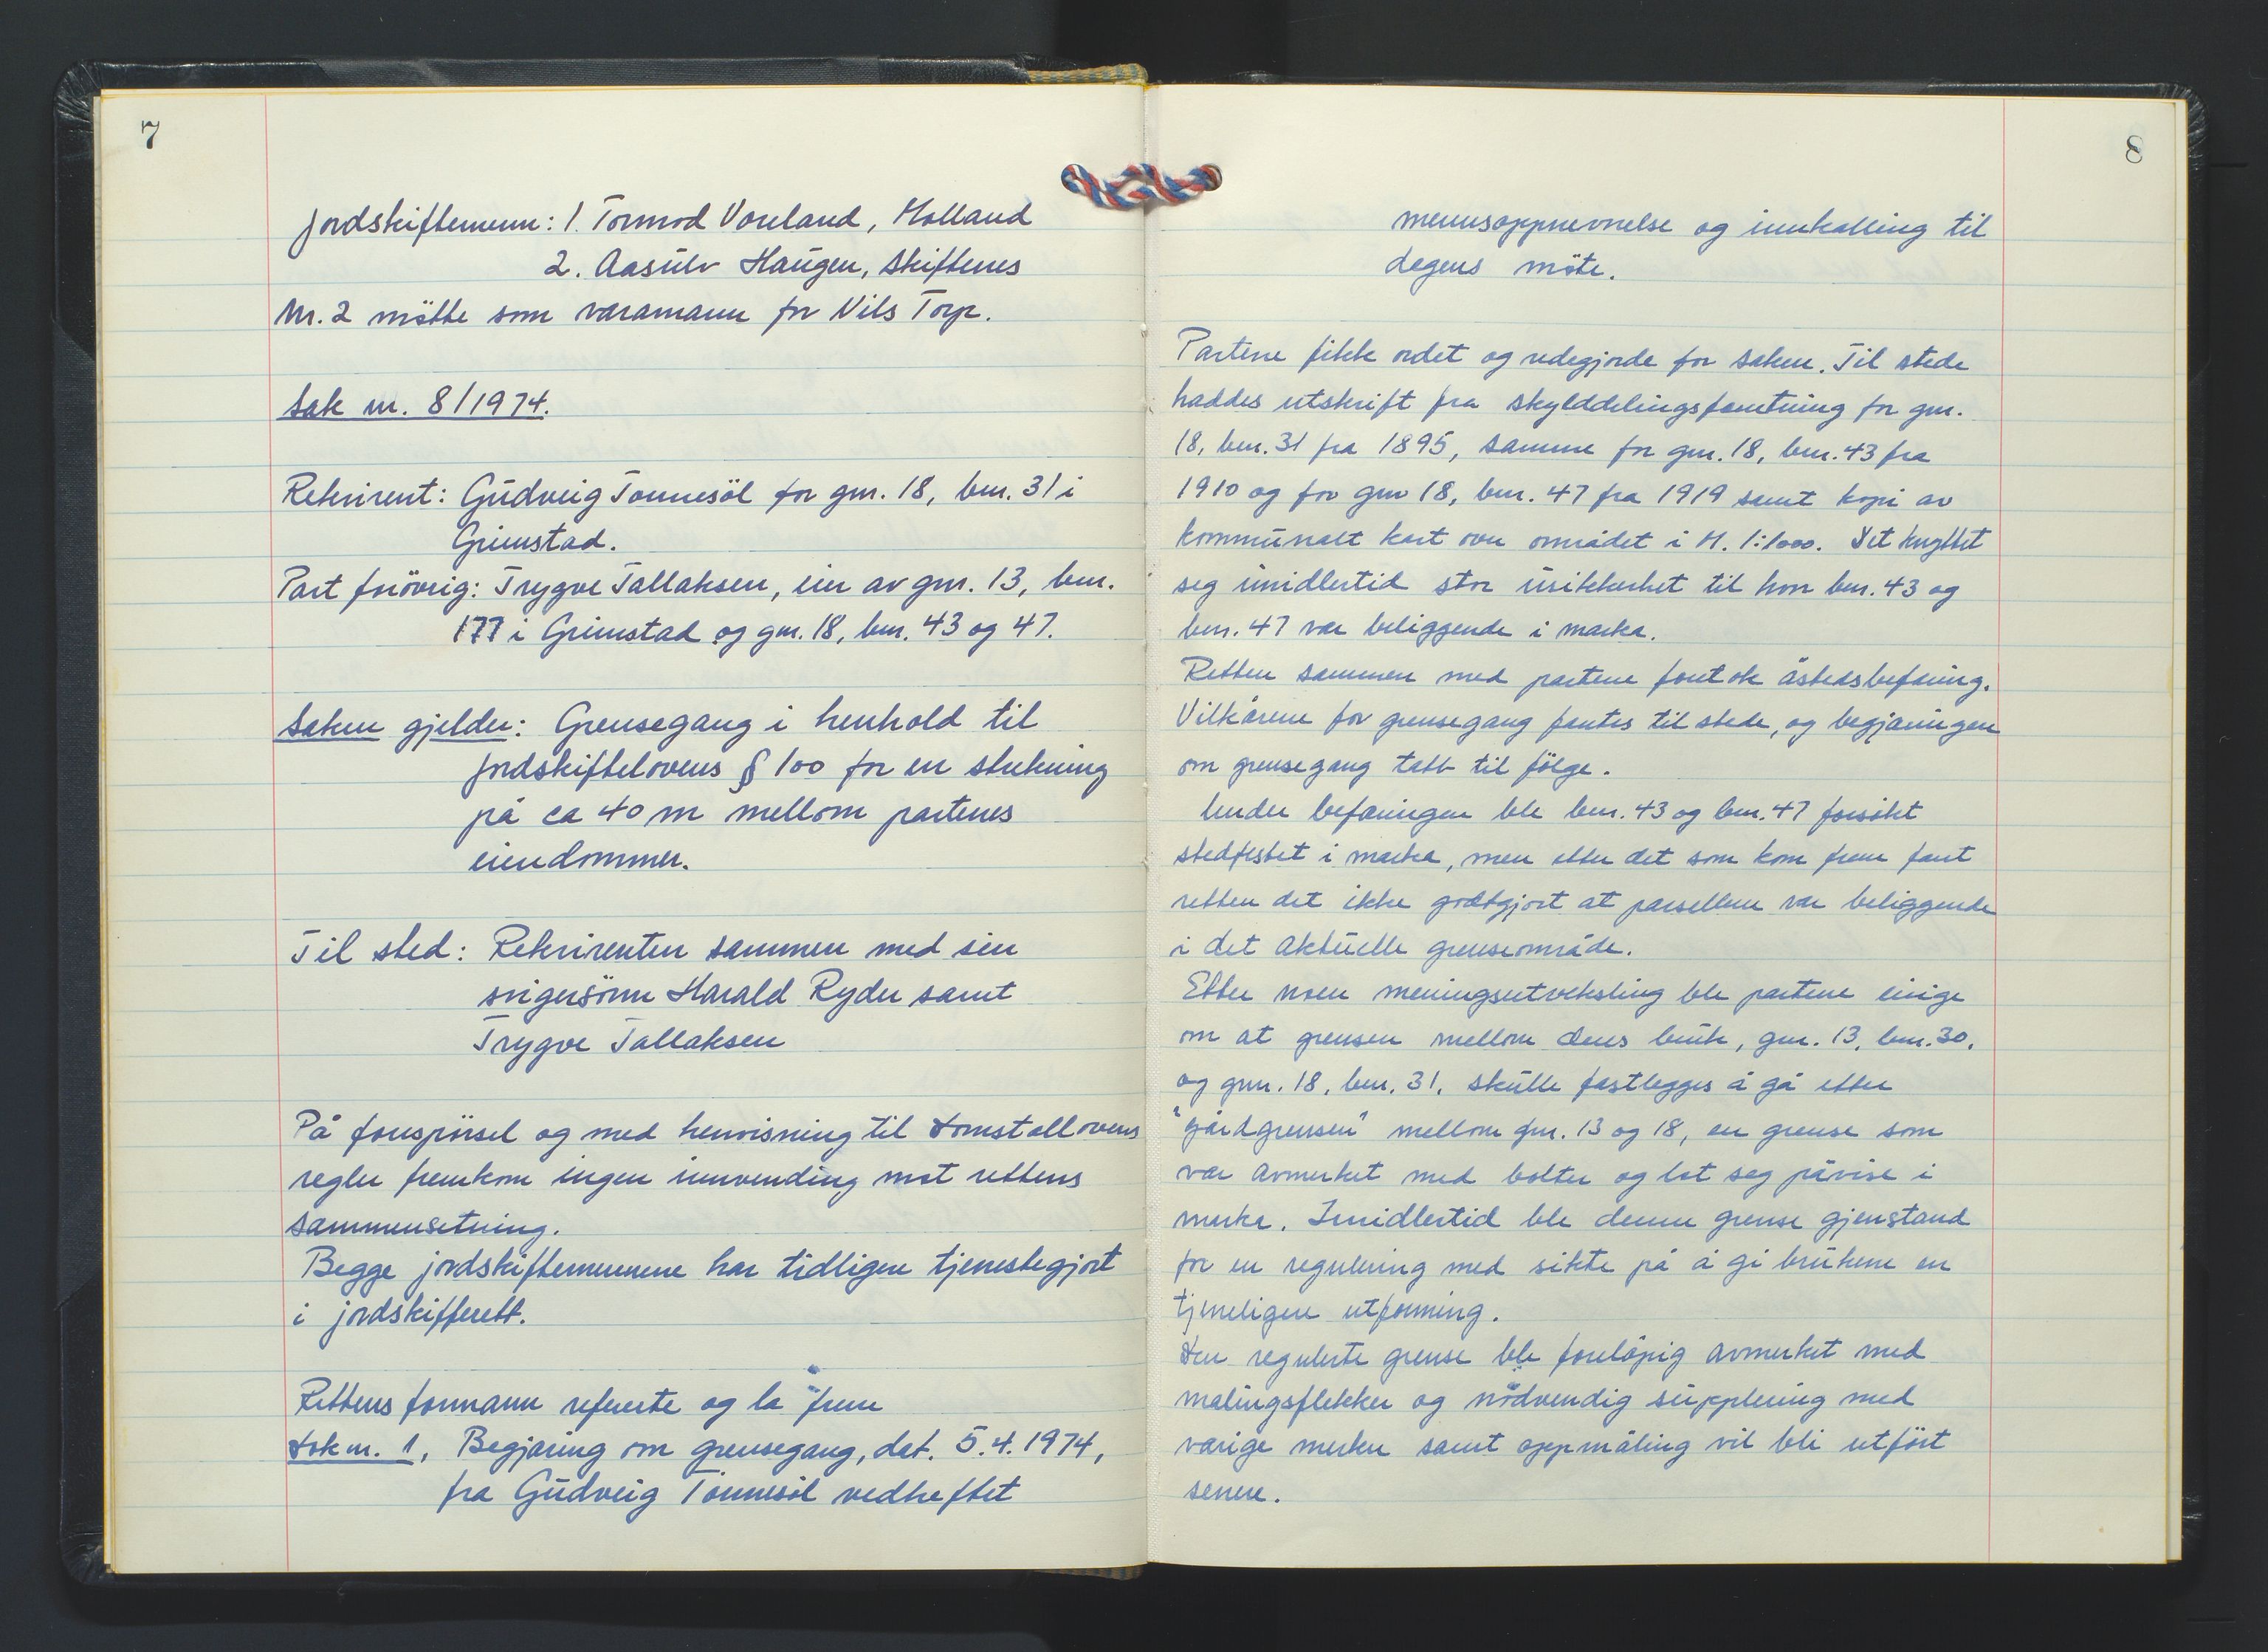 7
Jordskiftemenn: 1. Tormod Voreland, Holland
2. Aasulv Haugen, Skiftenes
Nr. 2 møtte som varamann for Nils Torp.
Sak nr. 8/1974.
Rekvirent: Gudveig Tønnesøl for gnr. 18, bnr. 31 i
Grimstad.
Part forøvrig: Trygve Tallaksen, eier av gnr. 13, bnr.
177 i Grimstad og gnr. 18, bnr. 43 og 47.
Saken gjelder: Grensegang i henhold til
jordskiftelovens § 100 for en strekning
på ca 40 m mellom partenes
eiendommer.
Til sted: Rekvirenten sammen med sin
svigersønn Harald Ryder samt
Trygve Tallaksen
På forespørsel og med henvisning til domstollovens
regler fremkom ingen innvending mot rettens
sammensetning.
Begge jordskiftemennene har tidligere tjenestegjort
i jordskifterett.
Rettens formann refererte og la frem
Dok nr. 1, Begjæring om grensegang, dat. 5.4.1974,
fra Gudveig Tønnesøl vedheftet
8
mennsoppnevnelse og innkalling til
dagens møte.
Partene fikk ordet og redegjorde for saken. Til stede
haddes utskrift fra skylddelingsforretning for gnr.
18, bnr. 31 fra 1895, samme for gnr. 18, bnr. 43 fra
1910 og for gnr 18, bnr. 47 fra 1919 samt kopi av
kommunalt kart over området i M. 1:1000. Det knyttet
seg imidlertid stor usikkerhet til hvor bnr. 43 og
bnr. 47 var beliggende i marka.
Retten sammen med partene foretok åstedsbefaring.
Vilkårene for grensegang fantes til stede, og begjæringen
om grensegang tatt til følge.
Under befaringen ble bnr. 43 og bnr. 47 forsøkt
stedfestet i marka, men etter det som kom frem fant
retten det ikke godtgjort at parsellene var beliggende
i det aktuelle grenseområde.
Etter noen meningsutveksling ble partene enige
om at grensen mellom deres bruk, gnr. 13, bnr. 30,
og gnr. 18, bnr. 31, skulle fastlegges å gå etter
"gårdgrensen" mellom gnr. 13 og 18, en grense som
var avmerket med bolter og lot seg påvise i
marka. Imidlertid ble denne grense gjenstand
for en regulering med sikte på å gi brukene en
tjeneligere utforming.
Den regulerte grense ble foreløpig avmerket med
malingsflekker og nødvendig supplering med
varige merker samt oppmåling vil bli utført
senere.